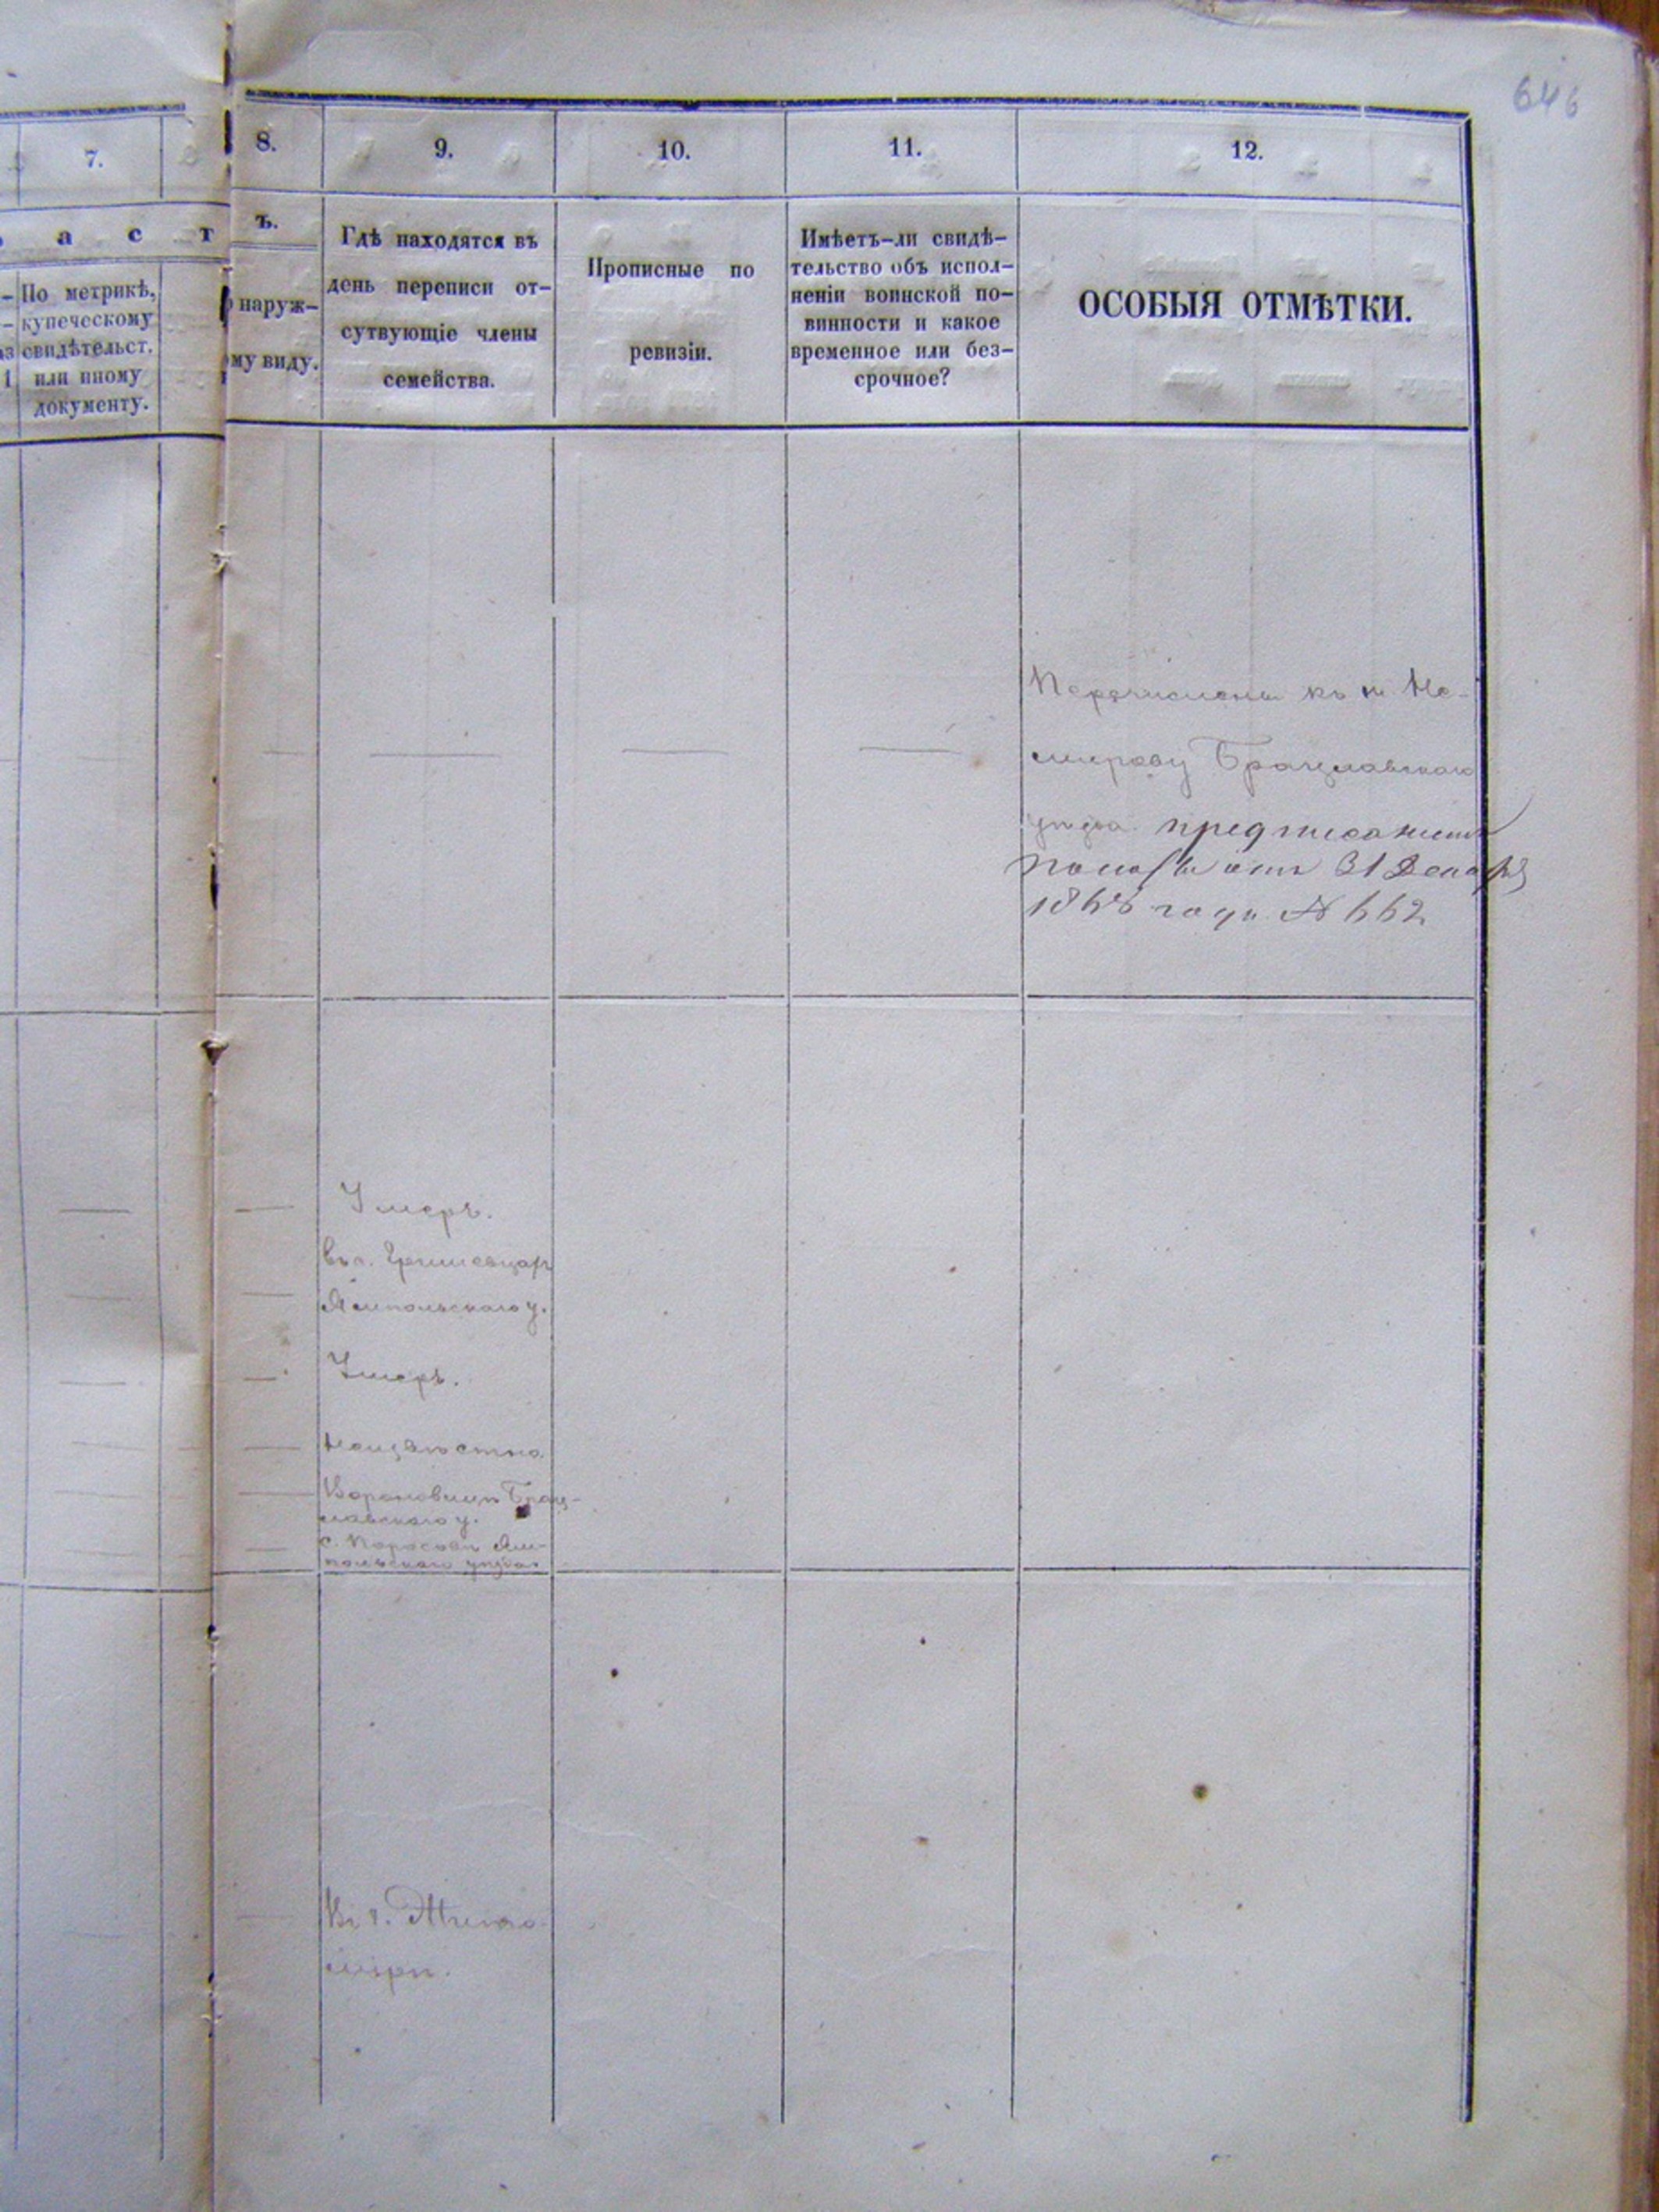 646
7.
8.
9.
10.
11.
12.
а с т
ъ.
По метрикѣ,
купеческому
свидѣтельст.
или иному
документу.
наруж-
му виду.
Гдѣ находятся въ
день переписи от-
сутвующіе члены
семейства.
Прописные по
ревизіи.
Имѣетъ-ли свидѣ-
тельство объ испол-
неніи воинской по-
винности и какое
временное или без-
срочное?
ОСОБЫЯ ОТМѢТКИ.
Перечислены къ м. Не-
мирову Брацлавскаго
уѣзда предписаніемъ
отъ 31 Декабря
года № 662
Умеръ.
въ с.
Ямпольскаго у.
Умеръ.
Неизвѣстно.
Вороновицѣ Брац-
лавскаго у.
с. Ям-
польскаго уѣзда
Въ г. Жито-
мірѣ.